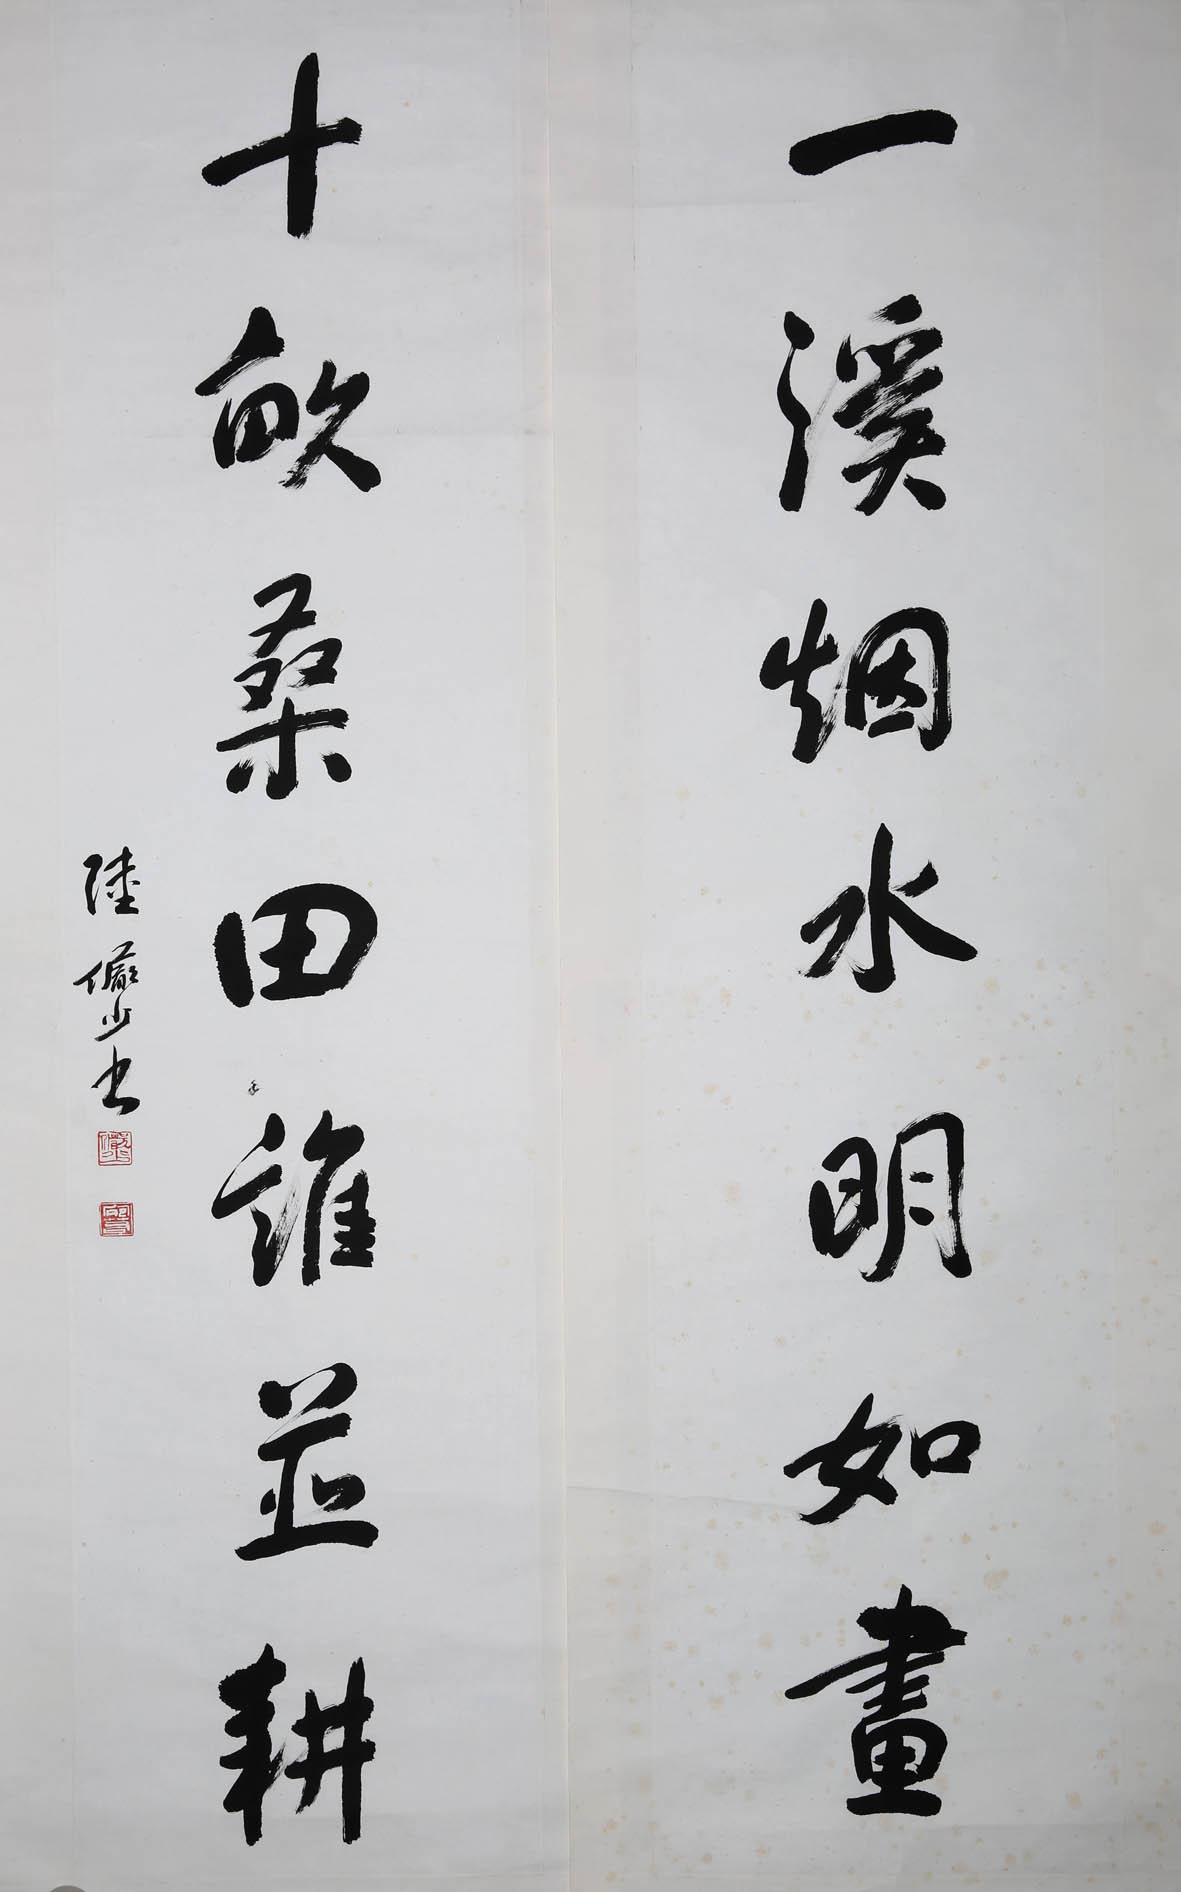 一溪烟水明如畫
十畝桑田誰並耕
陸儼少書